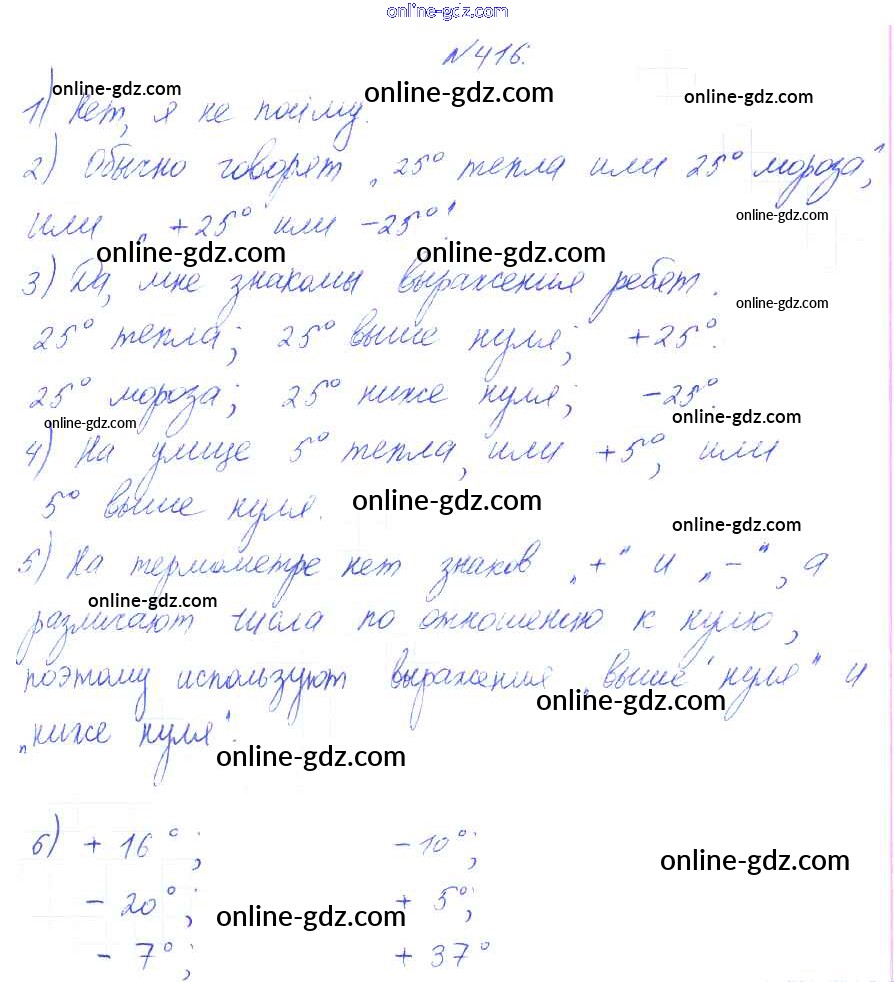 online-gdz.com
№416.
online-gdz.com online-gdz.com online-gdz.com
1) Нет, я не пойму.
2) Обычно говорят „25° тепла или 25° мороза",
online-gdz.com
или „+25° или -25°".
online-gdz.com online-gdz.com
3) Да, мне знакомы выражения ребят.
online-gdz.com
25° тепла; 25° выше нуля; +25°.
25° мороза; 25° ниже нуля; -25°.
online-gdz.com online-gdz.com
4) На улице 5° тепла, или +5°, или
5° выше нуля.
online-gdz.com
online-gdz.com
5) На термометре нет знаков „+" и „-", а
online-gdz.com
различают числа по отношению к нулю,
поэтому используют выражения „выше нуля" и
online-gdz.com
„ниже нуля".
online-gdz.com
6) +16°; -10°;
online-gdz.com
-20°; +5°;
online-gdz.com
-7°; +37°